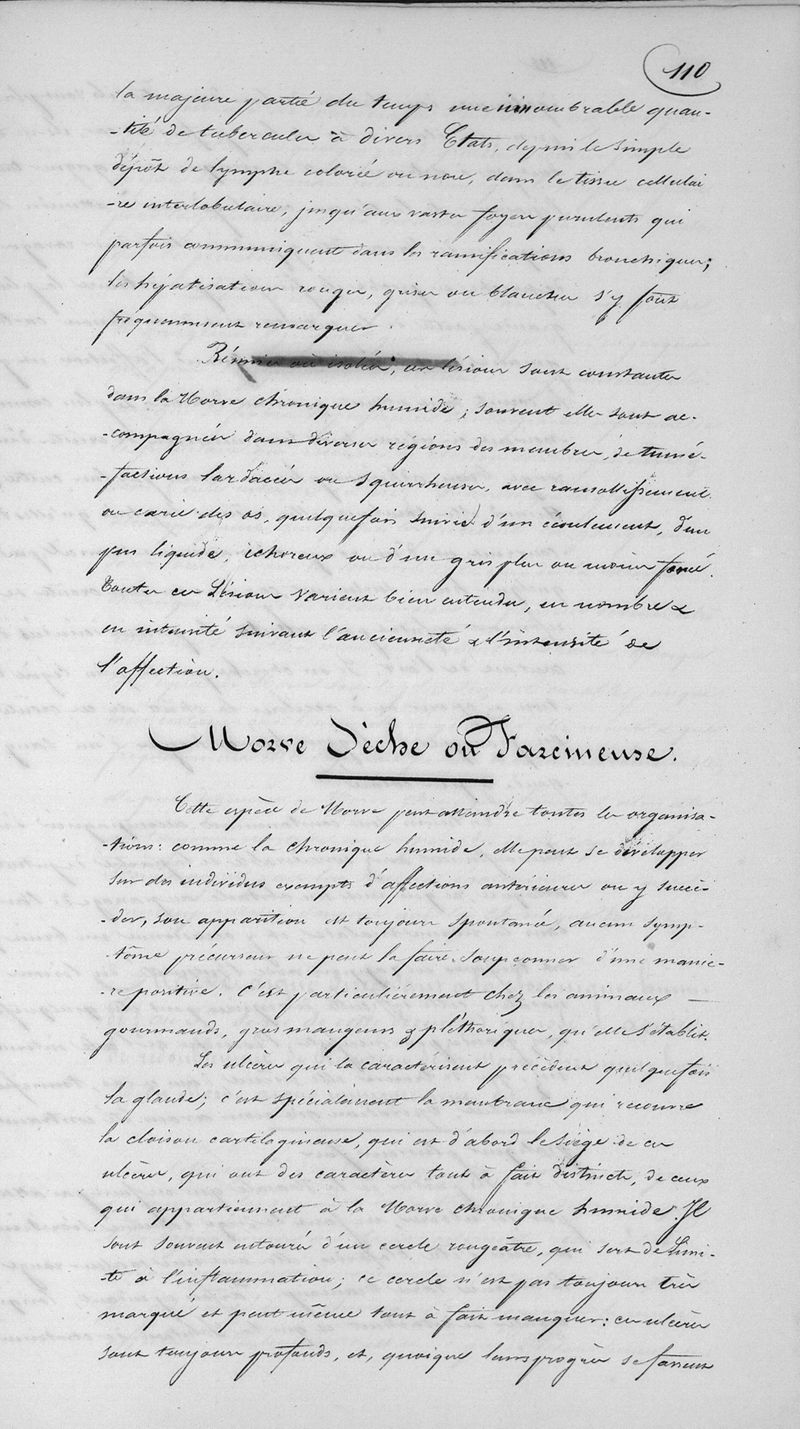 110
la majeure partie du temps une innombrable quan-
-tité de tubercules à divers Etats, depuis le simple
dépôt de lymphe colorée ou non, dans le tissu cellulai
-re interlobulaire, jusqu'aux vastes foyers purulents qui
parfois communiquent dans les ramifications bronchiques;
les hépatisations rouges, grises ou blanches s'y font
fréquemment remarquer.
Réunies ou isolées, ces lésions sont constantes
dans la Morve chronique humide; souvent elles sont ac-
-compagnées dans diverses régions des membres, de tumé-
-factions lardacées ou squirrheuses, avec ramollissement
ou carie des os, quelquefois suivis d'un écoulement, d'un
pus liquide, ichoreux ou d'un gris plus ou moins foncé.
Toutes ces Lésions varient bien entendu, en nombre &
en intensité suivant l'ancienneté & l'intensité de
l'affection.
Morve Sèche ou Farcineuse.
Cette espèce de Morve peut atteindre toutes les organisa-
-tions: comme la chronique humide, elle peut se développer
sur des individus exempts d'affections antérieures ou y succé-
-der, son apparition est toujours spontanée, aucun symp-
-tôme précurseur ne peut la faire soupçonner d'une maniè-
-re positive. C'est particulièrement chez les animaux
gourmands, gros mangeurs & pléthoriques, qu'elle s'établit.
Les ulcères qui la caractérisent précèdent quelquefois
la glande; c'est spécialement la membrane qui recouvre
la cloison cartilagineuse, qui est d'abord le siège de ces
ulcères, qui ont des caractères tout à fait distincts, de ceux
qui appartiennent à la Morve chronique humide. Il
sont souvent entourés d'un cercle rougeâtre, qui sert de Limi-
-te à l'inflammation; ce cercle n'est pas toujours très
marqué et peut même tout à fait manquer: ces ulcères
sont toujours profonds, et, quoique leurs progrès se fassent